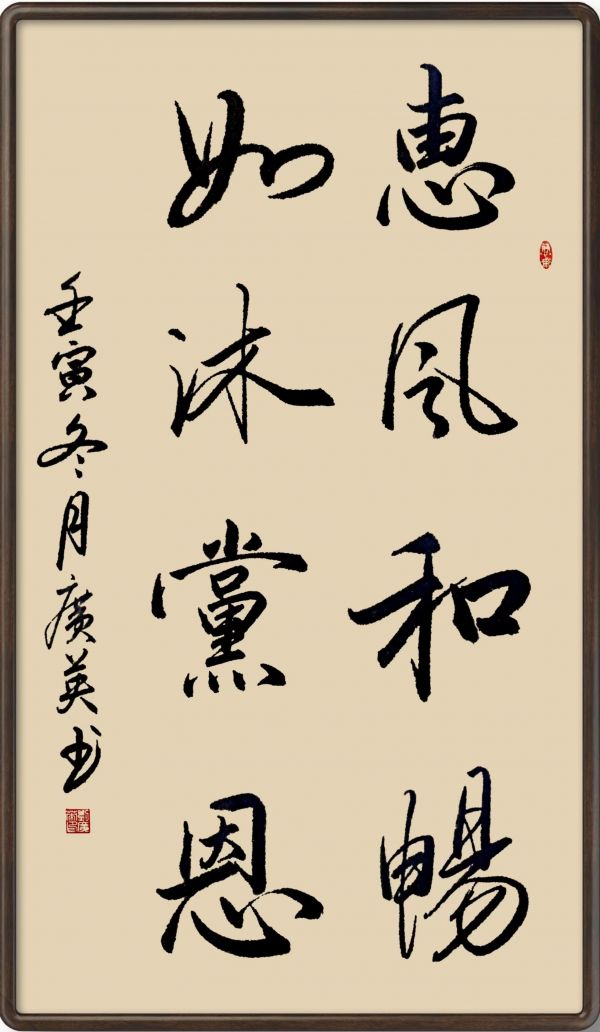 惠风和暢
如沐黨恩
壬寅冬月廣英书